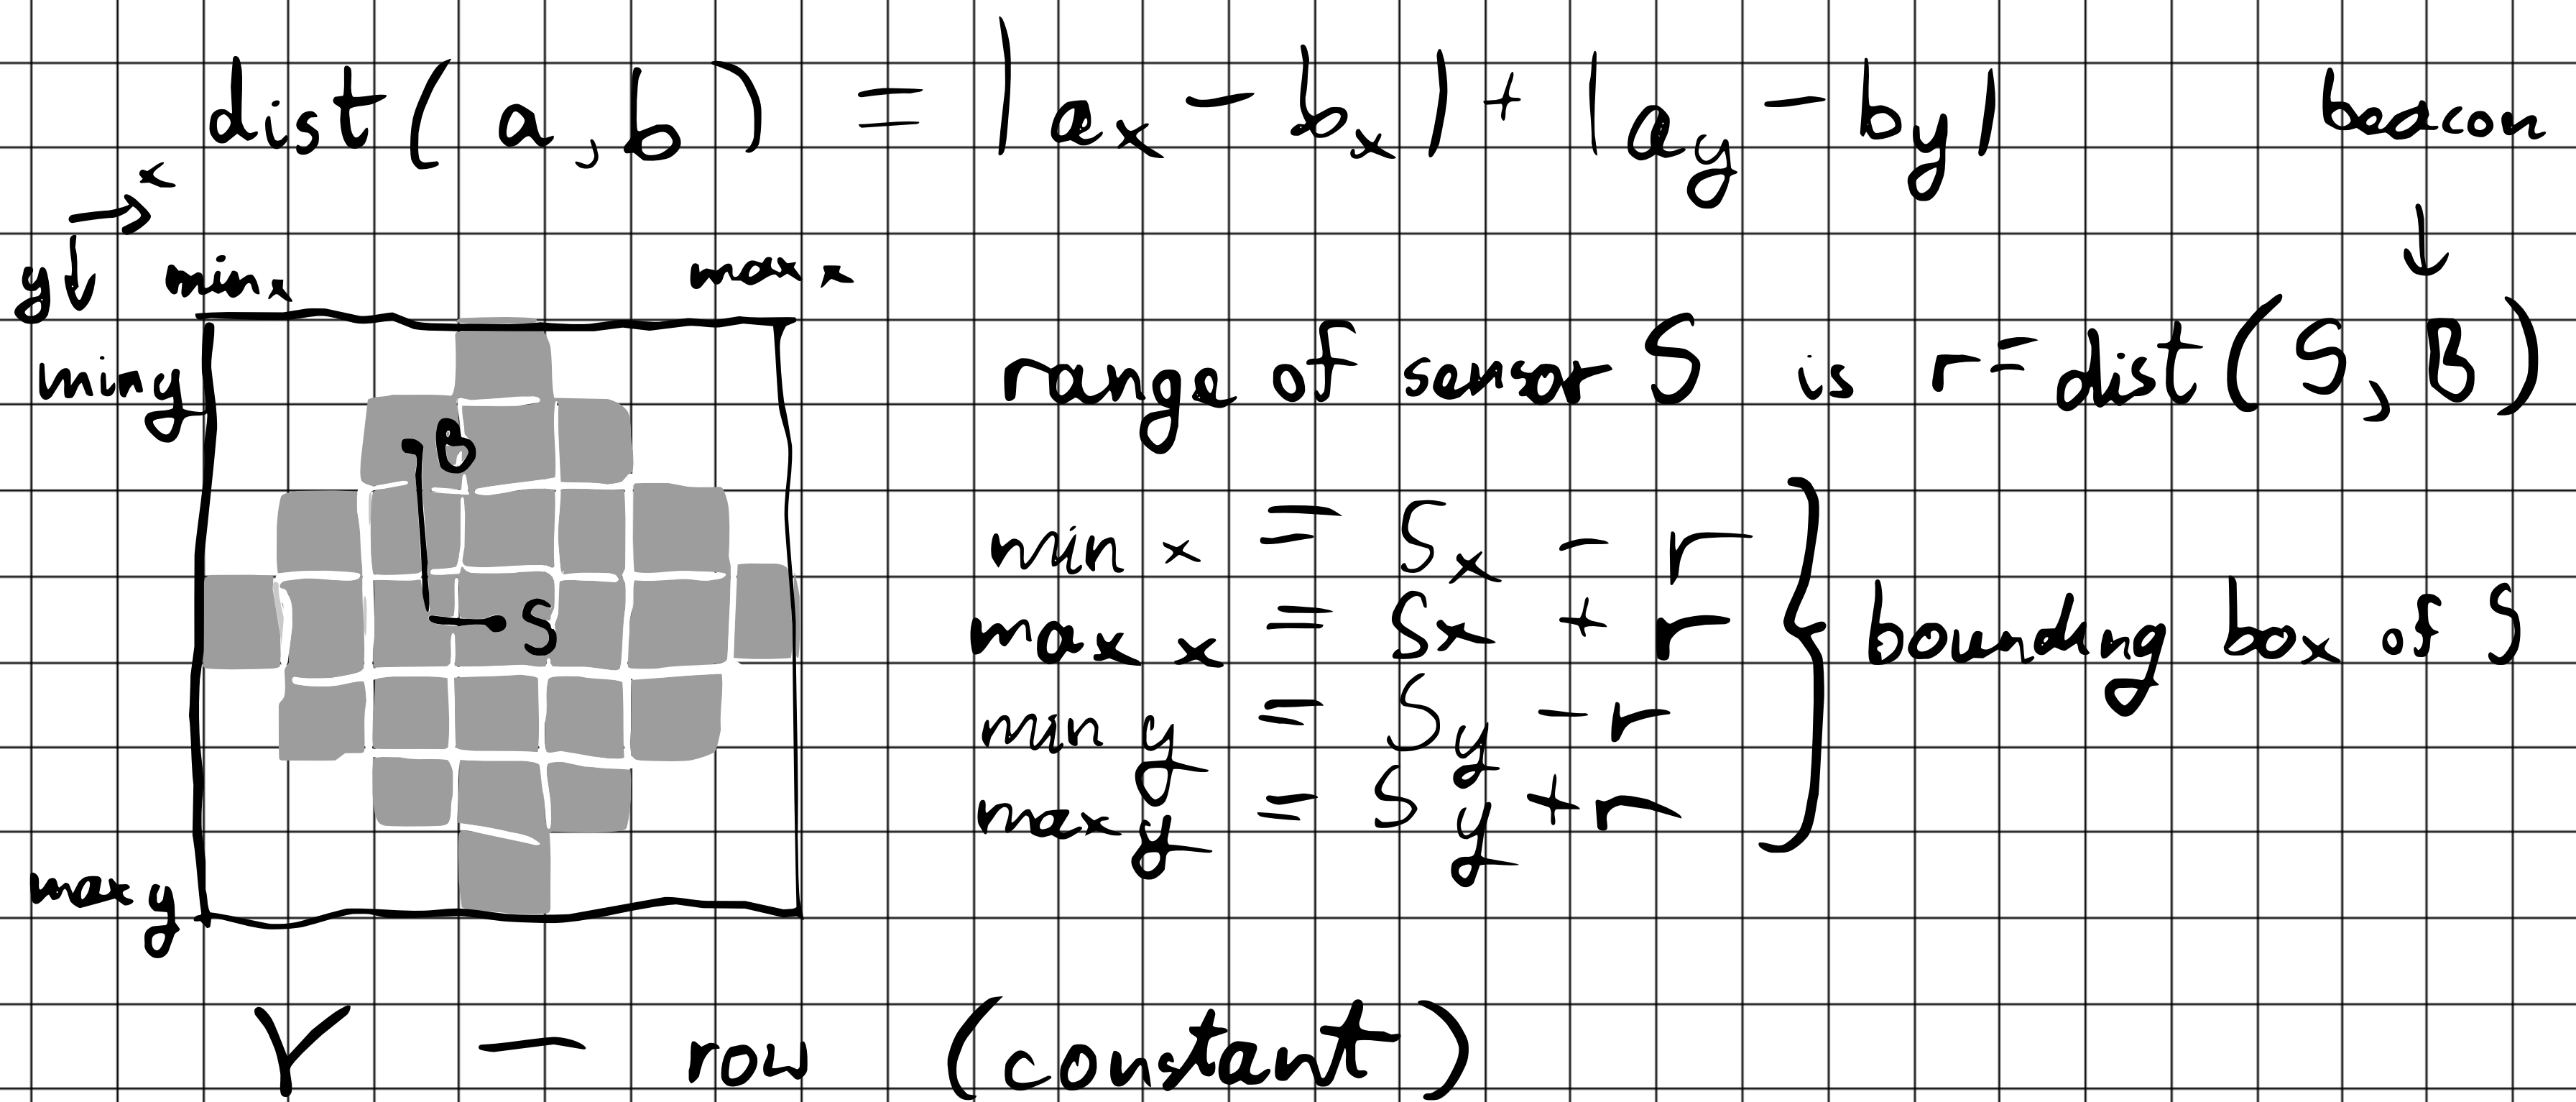 dist(a,b) = |ax - bx| + |ay - by|
beacon
↓
→ x
y ↓
min x
max x
min y
max y
B
S
range of sensor S is r = dist(S, B)
min x = Sx - r
max x = Sx + r
min y = Sy - r
max y = Sy + r
} bounding box of S
Y — row (constant)